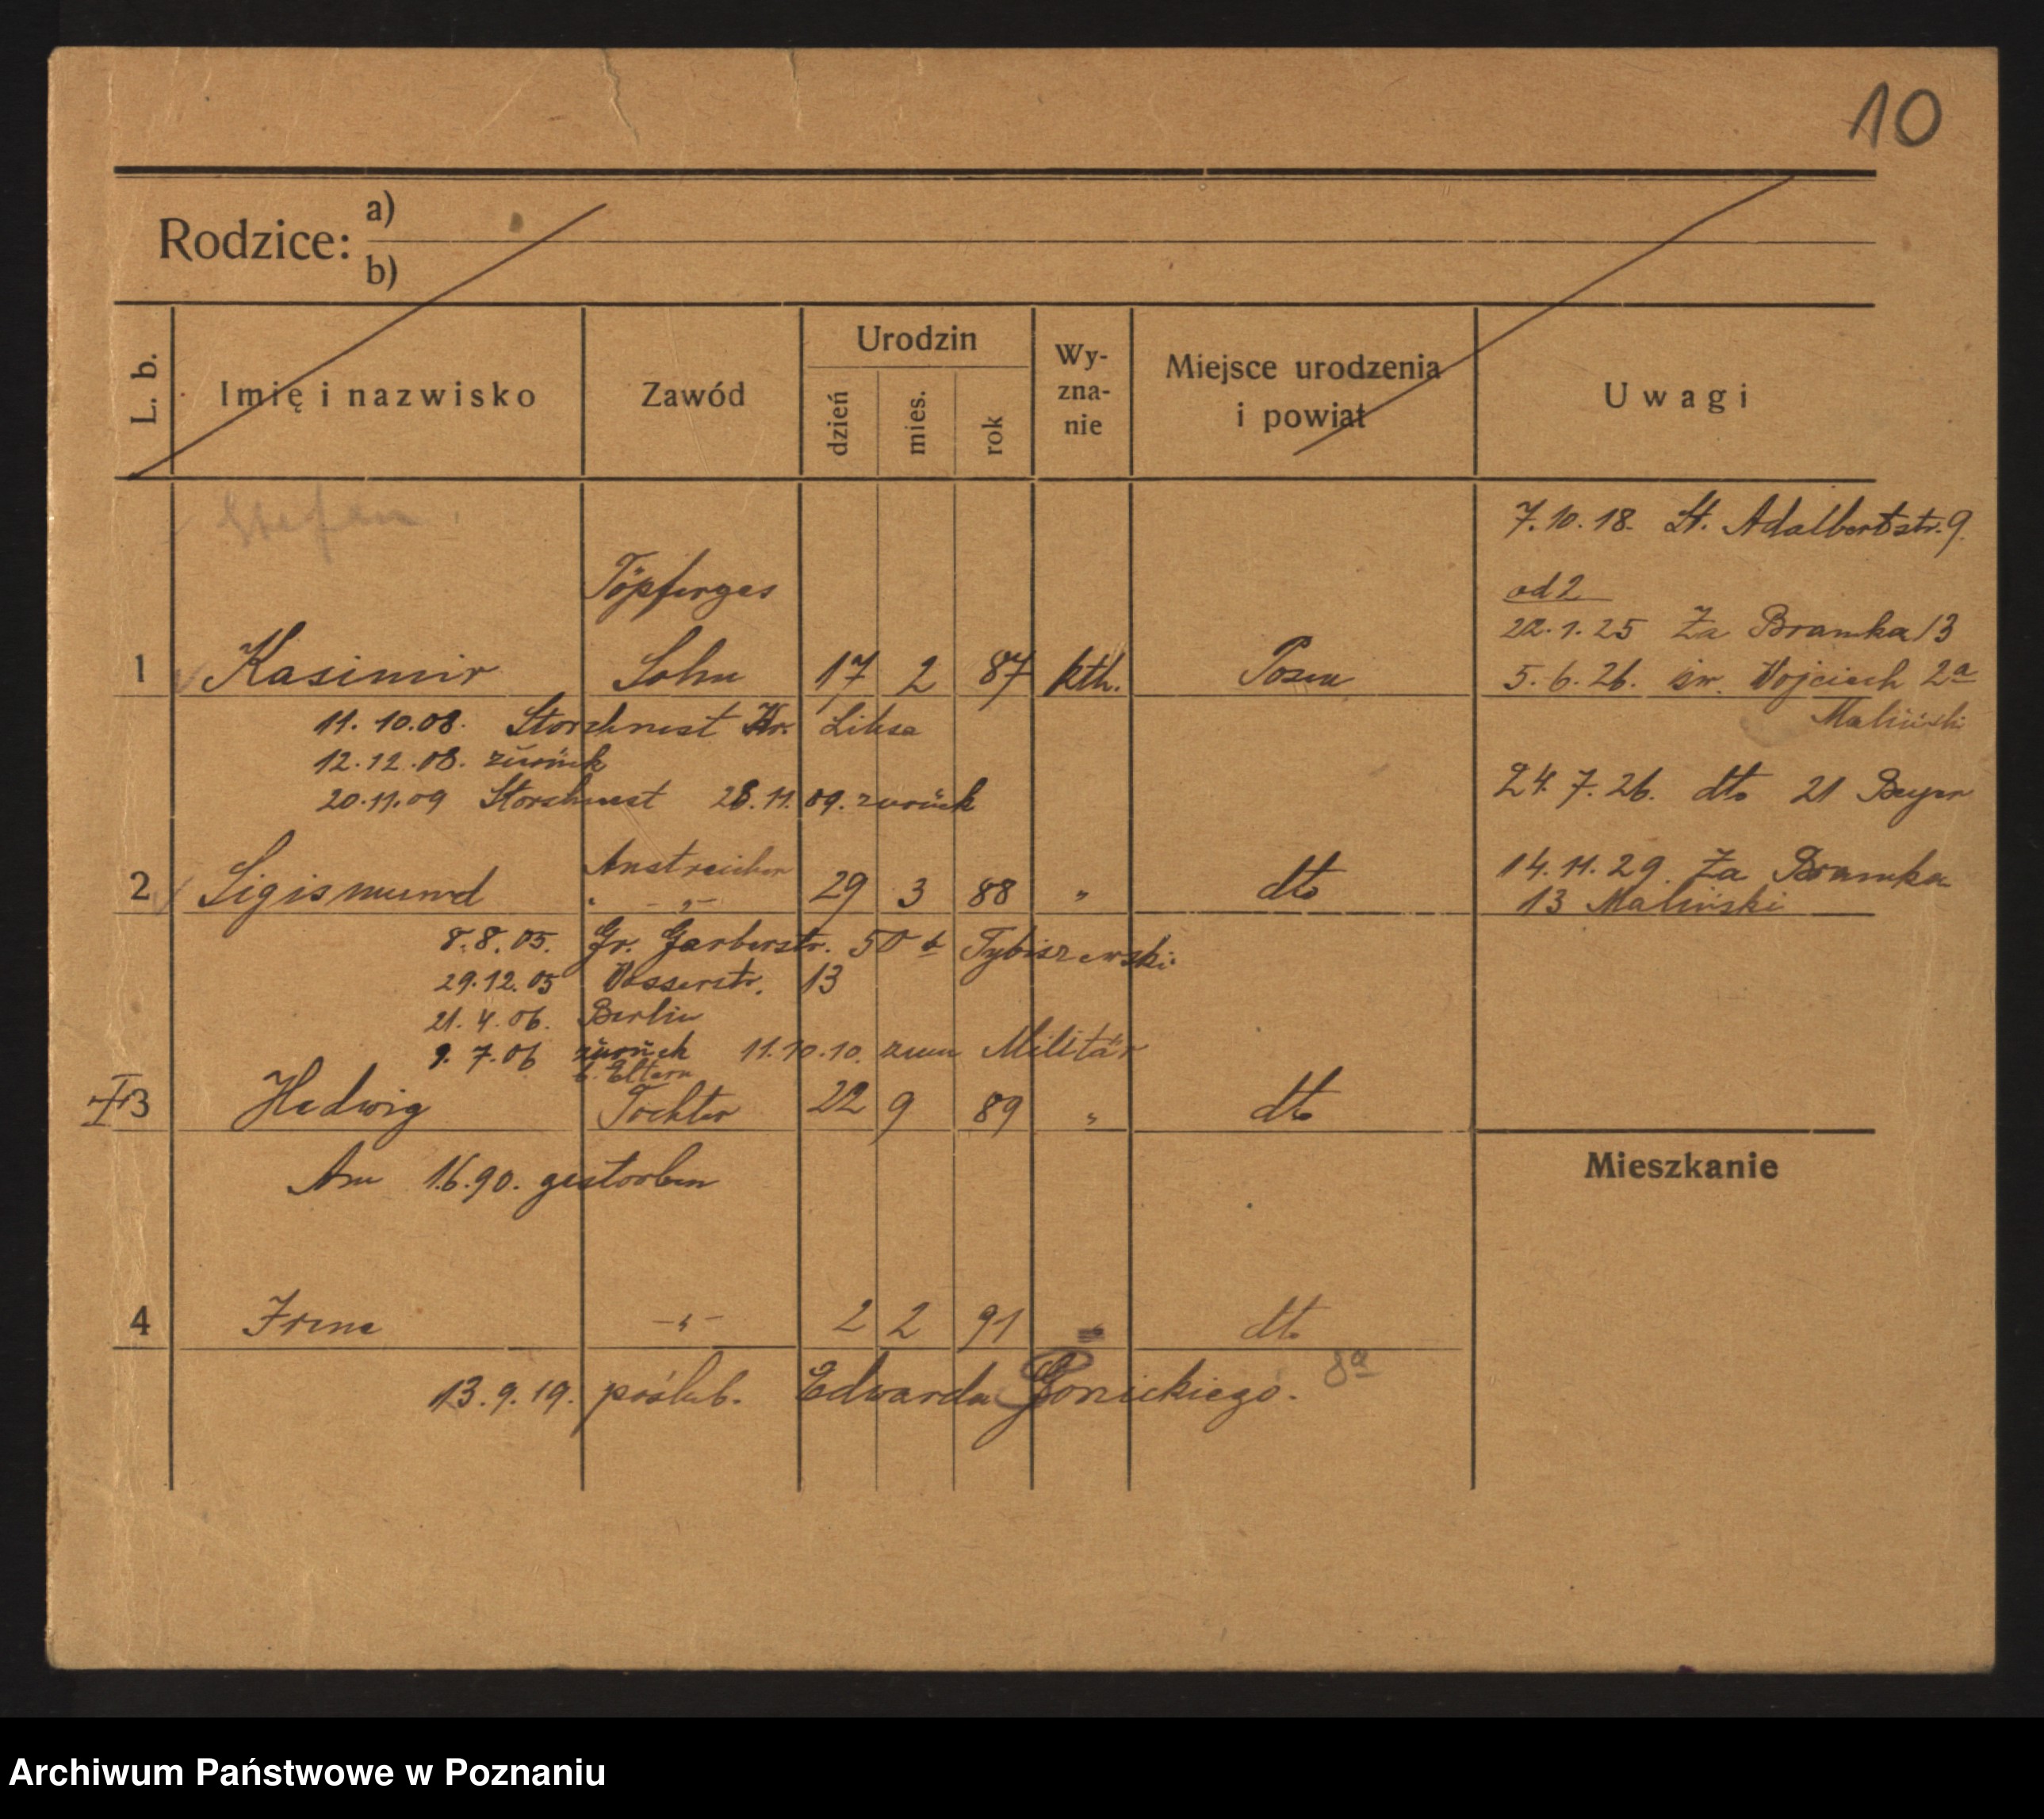 10
Rodzice: a)
b)
L. b.
Imię i nazwisko
Zawód
Urodzin
dzień
mies.
rok
Wy-
zna-
nie
Miejsce urodzenia
i powiat
Uwagi
Stefan
7.10.18. St. Adalbertstr. 9.
Töpferges
ad 2
22.1.25 Za Bramka 13
1 Kasimir Sohn 17 2 87 kth. Posen
5.6.26. św. Wojciech 2a
Maliński
11.10.08. Storchnest Kr. Lissa
12.12.08. zurück
20.11.09 Storchnest 28.11.09. zurück
24.7.26. dto 21 Beyer
Anstreicher
2 Sigismund " 29 3 88 " dto
14.11.29. Za Bramka
13 Maliński
8.8.05. Gr. Gerberstr. 50 Tybiszewski
29.12.05 Wasserstr. 13
21.4.06. Berlin
9.7.06 zurück 11.10.10. zum Militär
b. Eltern
3 Hedwig Tochter 22 9 89 " dto
Am 1.6.90. gestorben
Mieszkanie
4 Irene -"- 2 2 91 " dto
13.9.19. poślub. Edwarda Gonickiego. 8a
Archiwum Państwowe w Poznaniu